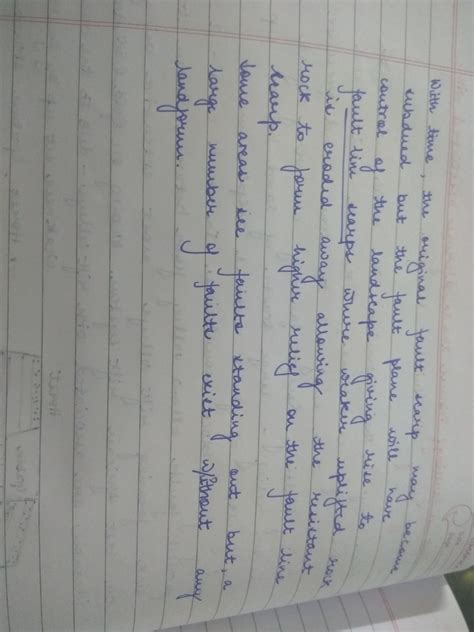 With time, the original fault scarp may become
subdued but the fault plane will have
control of the landscape giving rise to
fault line scarps where weaker uplifted rock
is eroded away allowing the resistant
rock to form higher relief on the fault line
scarp.
Some areas see faults standing out but, a
large number of faults exist without any
landform.